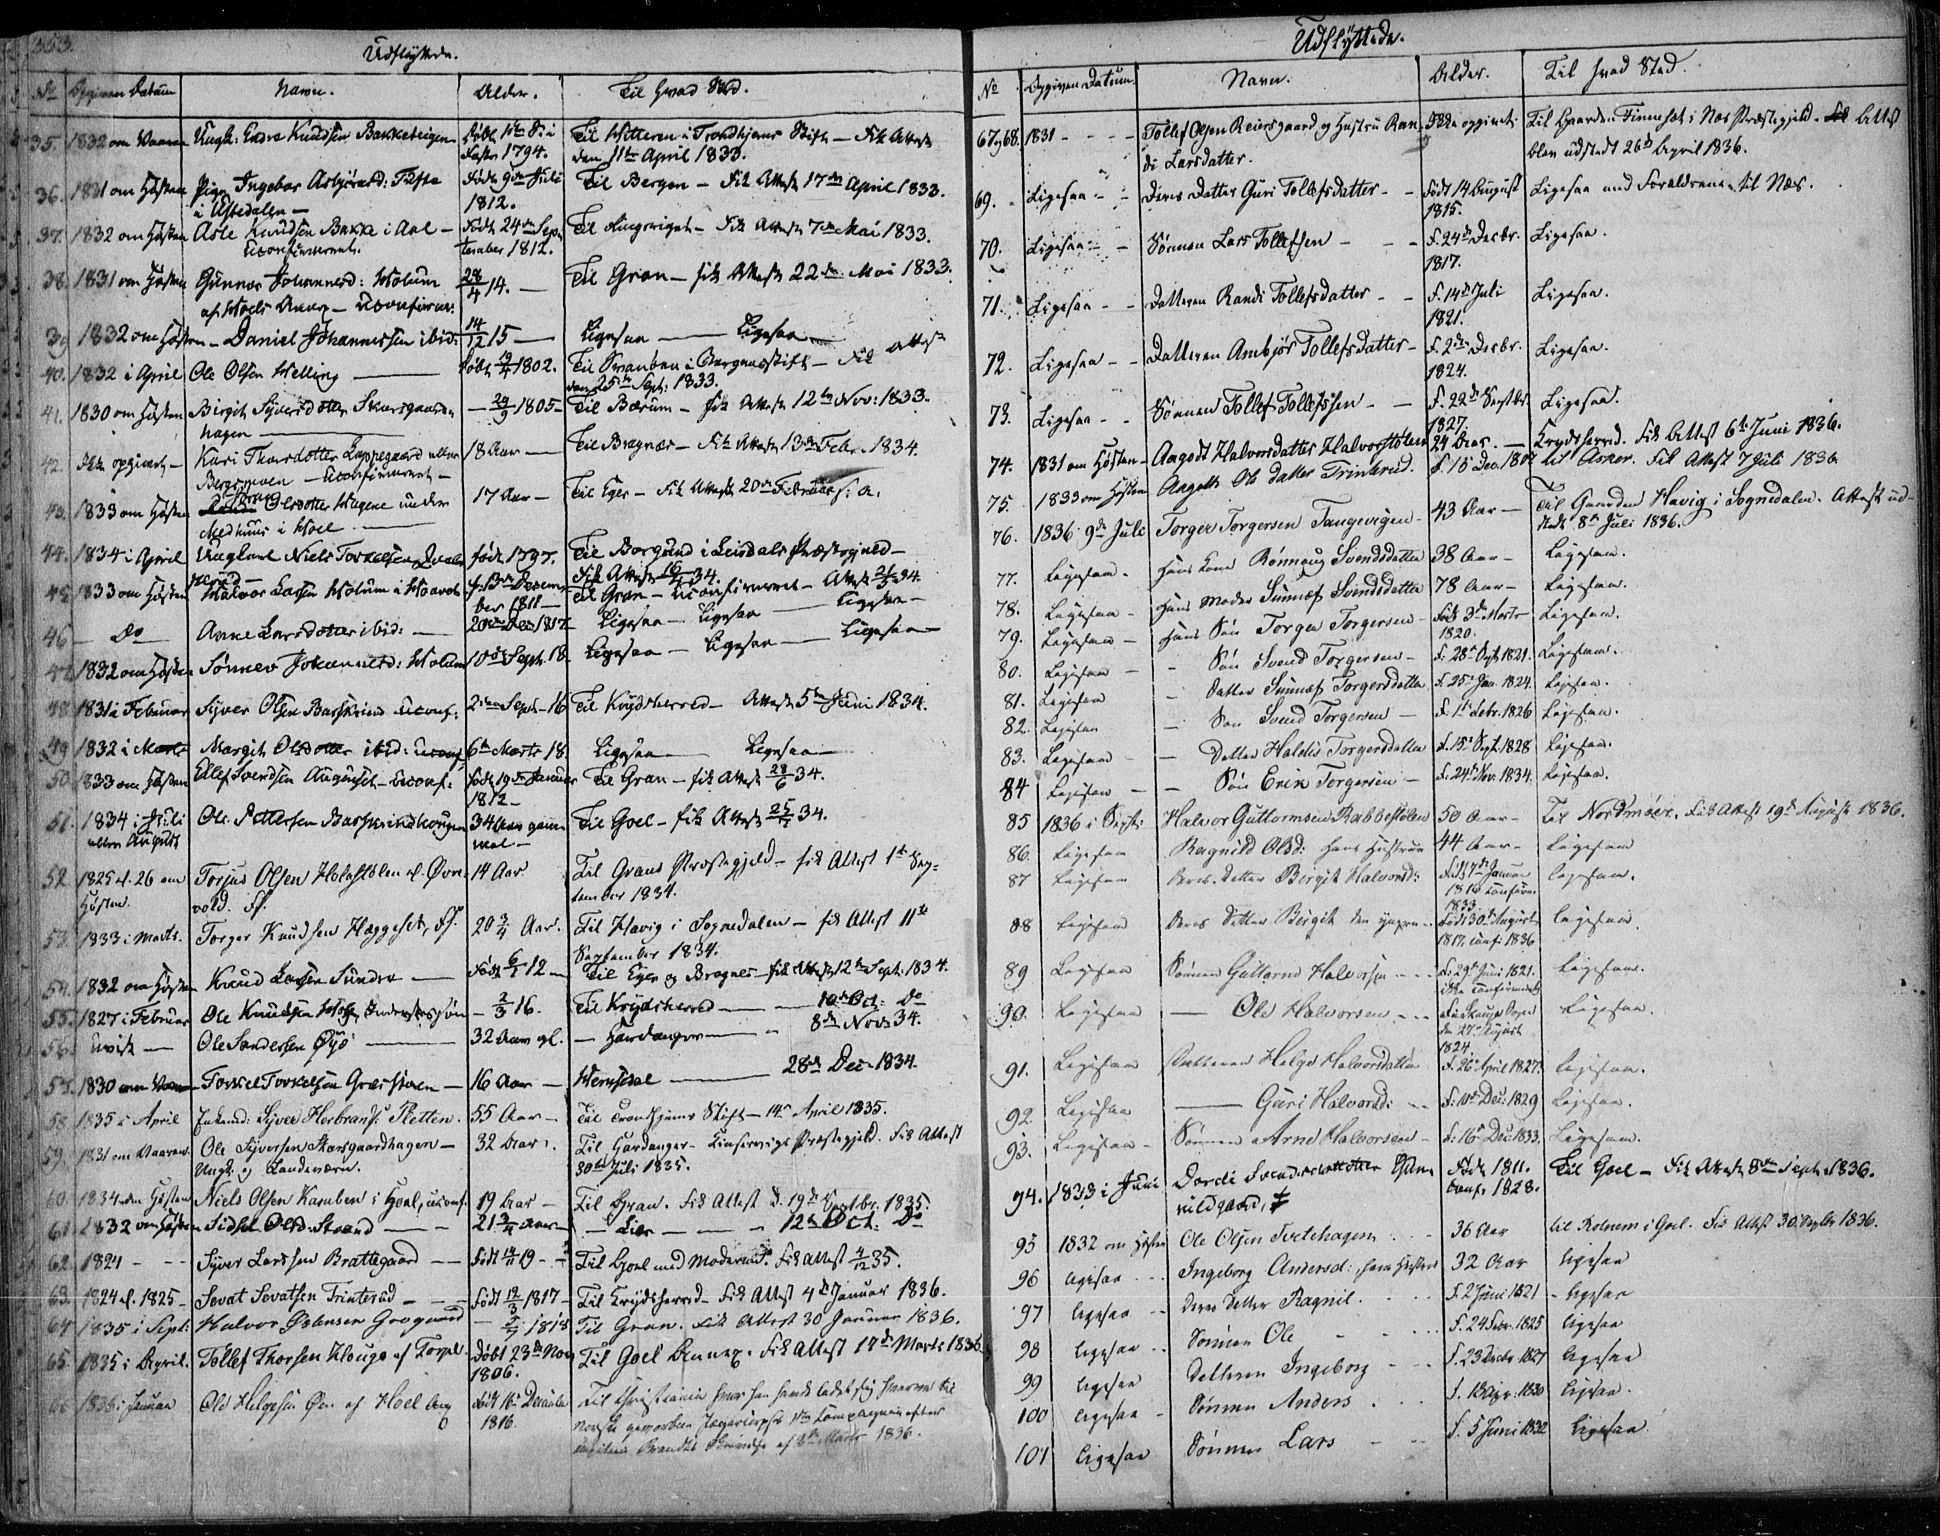 353.
Udflyttede.
No Opgiven Datum Navn. Alder. Til hvad Sted.
35. 1832 om Vaaren Ungk: Endre Knudsen Bakketeigen
Faster 1794. den 11te April 1833.
36. 1831 om Høsten Pige Ingebor Asbjørnsd: Tufte Født 9de Juli Til Bergen – Fik Attest 17de April 1833.
1812.
37. 1832 om Høsten Asle Knudsen Bakke i Aal – Født 24de Sep- Til Ringerige – Fik Attest 7de Mai 1833.
Uconfirmeret. tember 1812.
38. 1831 om Høsten Gunner Johannesd: Holum 28/4 14. – Til Gran – fik Attest 22de Mai 1833.
af Hoels Annex – Uconfirm:
39 1832 om Høsten – Daniel Johannessen ibid: 14/12 15 – Ligesaa – Ligesaa
40. 1832 i April Ole Olsen Melling Født 1802. i Bergens Stift – Fik Attest
den 25de Sept: 1833.
41. 1830 om Høsten Birgit Syversdotter Skarsgaards- – 29/9 1805 – Til Bærum – fik Attest 12te Nov: 1833.
hagen
42. Ikke opgivet – Kari Thorsdotter Lappegaard eller 18 Aar – Til Bragnæs – Fik Attest 13de Febr. 1834.
Bergsmoen – Uconfirmeret –
43. 1833 om Høsten Olsdotter Hagene under 17 Aar – Til Eger – Fik Attest 20de Februar s: a.
i Hoel
44. 1834 i April Ungkarl Niels Torkelsen født 1797. Til Borgund i Leirdals Præstegield –
Fik Attest 34.
45. 1833 om Høsten Halvor Larsen Holum i f. Decem- Til Gran – Uconfirmeret – Attest 34.
ber 1811 –
46 – Do Anne Larsdotter ibid: – 20de Dec 1817 Ligesaa – Ligesaa – Ligesaa –
47. 1832 om Høsten Sønnev Johannesd: Holum 10de Sept. 18. Ligesaa – Ligesaa – Ligesaa –
48. 1831 i Februar Syver Olsen Basskrind Uconf: Sept. 16 Til Krydsherred – Attest 5te Juni 1834.
49. 1832 i Marts Margit Olsdotter ibid: Uconf 6te Marts 18. Ligesaa – Ligesaa –
50. 1833 om Høsten Ellef Svendsen Augunset – Uconf: Født 19de Januar Til Gran – fik Attest 28/6 34.
1812 –
51. 1834 i Juli Ole Pettersen Basskrindhougen 34 Aar gam- Til Goel – fik Attest 25/7 34.
eller August mel –
52. 1825 el. 26 om Torjus Olsen Holestølen el. Øvre- 14 Aar Til Grans Præstegjeld – fik Attest 1ste Sep-
Høsten. vold. tember 1834.
53. 1833 i Marts. Torger Knudsen Haggeset, 20 3/4 Aar. Til Havig i Sognedalen – fik Attest 11te
September 1834.
54. 1832 om Høsten Knud Larsen Sundre – Født 12 – Til Eger og Bragnes – fik Attest 12te Sept: 1834.
55. 1827 i Februar Ole Knudsen – 2/3 16. Til Krydsherred – 10de Oct: Do
56. Uvist – Ole Sandersen Øyo 32 Aar gl. – Hardanger – 8de Nov: 34.
57. 1830 om Vaaren Torkel Torkelsen Græsteen – 16 Aar – Hemsedal – 28de Dec. 1834.
58. 1835 i April Syver Herbrands: Sletten. 55 Aar – Til Trondhjems Stift – 14de April 1835.
59. 1831 om Vaaren. Ole Syversen Skarsgaardhagen – 32 Aar. Til Hardanger – Kinservigs Præstegjeld. Fik Attest
Ungk. og Landeværn. 30te Juli 1835.
60. 1834 om Høsten Niels Olsen Kamben i Hoel, uconf. 19 Aar – Til Gran. Fik Attest d. 19de Septbr. 1835.
61. 1832 om Høsten Sidsel Olsd: Strand – 21 3/4 Aar – – Lier – 12te Oct: Do
62. 1824 – – Syver Larssen Brattegaard – Født 19 – Til Goel med Moderen. Fik Attest 4/12 35.
63. 1824 el. 1825 – Sevat Sevatsen Trinterud – Født 12/3 1817 – Til Krydsherred – Fik Attest 4de Januar 1836.
64. 1835 i Sept: Halvor Østensen Grøgaard – 1818 Til Gran. Fik Attest 30 Januar 1836.
65. 1835 i April. Tollef Thorsen Klouga af Torpe. Født 23de Nov Til Goel Annex. Fik Attest 17de Marts 1836.
1806.
66 1836 i Januar Ole Helgesen Øen af Hoel Anx Født 16de December Til Christiania hvor han havde ladet sig hverve til
1816. Norske gevorbne Jægercorpses Compagnie efter
Brandts Skrivelse af Marts 1836.
Udflyttede.
No Opgiven Datum. Navn. Alder. Til hvad Sted.
67 og 68. 1831 – – – Tollef Olsen Reirsgaard og Hustru Ran- Ikke opgivet. Til Gaarden Finneset i Næs Præstegjeld. Attest
di Larsdatter. blev udstedt 26de April 1836.
69. Ligesaa – – Deres Datter Guri Tollefsdatter – – Født 14 August Ligesaa med Forældrene til Næs.
1815.
70. Ligesaa – – Sønnen Lars Tollefsen – – f. 24de Decbr. Ligesaa.
1817.
71. Ligesaa – – Datteren Randi Tollefsdatter – – f. 14de Juli Ligesaa.
1821.
72. Ligesaa – – Datteren Ambjør Tollefsdatter – f. 2de Decbr. Ligesaa.
1824.
73. Ligesaa – Sønnen Tollef Tollefssen – – f. 22de Septbr. Ligesaa.
1827.
74. 1831 om Høsten – Aagodt Halvorsdatter Halvorstølen 24 Aar. – Krydsherred. Fik Attest 6te Juni 1836.
75. 1833 om Høsten Aagotte Ols datter Trinterud. f. 15 Dec. 1807 til Asker. Fik Attest 7 Juli 1836
76. 1836 9de Juli Torger Torgersen Tangevigen – 43 Aar – Til Gaarden Havig i Sogndalen. Attest ud-
stedt 8de Juli 1836.
77. Ligesaa. Hans Kone Rønnoug Svendsdatter 38 Aar – Ligesaa.
78. Ligesaa – Hans Moder Sunnef Svendsdatter 78 Aar – Ligesaa.
79. Ligesaa – Hans Søn Torger Torgersen – Født 3de Marts Ligesaa.
1820.
80. Ligesaa – – Søn Svend Torgersen – f. 28de Sept. 1821. Ligesaa.
81. Ligesaa – Datter Sunnef Torgersdatter f. 25de Jan. 1824. Ligesaa.
82. Ligesaa – Søn Svend Torgersen – f. 1ste Febr. 1826 Ligesaa.
83. Ligesaa – – Datter Haldis Torgersdatter f. 15de Sept. 1828 Ligesaa.
84 Ligesaa – – Søn Erik Torgersen – f. 24de Nov. 1834. Ligesaa.
85 1836 i Sept: Halvor Guttormsen Rabbestølen 50 Aar – Til Nordmøer. Fik Attest 19de August 1836.
86. Ligesaa Ragnild Olsd: hans Hustru 44 Aar – Ligesaa
87 Ligesaa Deres Datter Birgit Halvorsd: Født 7de Januar Ligesaa.
1816 confirm.
1833.
88 Ligesaa Deres Datter Birgit den yngre – Født 30te August Ligesaa.
1817, conf: 1836
89 Ligesaa Sønnen Guttorm Halvorsen – – f. 29de Juni 1821. Ligesaa.
ikke confirmeret
90. Ligesaa – Ole Halvorsen – – Ligesaa.
den 27de August
1824.
91. Ligesaa Datteren Helge Halvorsdatter f. 26de April 1827. Ligesaa.
92. Ligesaa – Guri Halvorsd: – f. 10de Dec: 1829 Ligesaa.
93. Ligesaa – Sønnen Arne Halvorsen – f. 16de Dec: 1833. Ligesaa.
94. 1833 i Juni Dordi Svendsdotter Født 1811. Til Goel – Fik Attest Sept. 1836.
Conf. 1828.
95 1832 om Høsten Ole Olsen Tvetehagen . . . 36 Aar til Rotnem i Goel. Fik Attest 30. Septbr 1836.
96 Ligesaa . . . Ingeborg Amersd: hans Hustru 32 Aar Ligesaa
97 Ligesaa – Deres Datter Ragnil. . . . f. 2 Juni 1821 – Ligesaa
98 Ligesaa – Sønnen Ole – – f. 24 Febr. 1825 Ligesaa
99 Ligesaa Datteren Ingeborg – – f. 23 Decbr 1827 Ligesaa
100 Ligesaa – Sønnen Anders . . . f. 1830 Ligesaa.
101 Ligesaa Sønnen Lars – – f. 5 Juni 1832 Ligesaa.